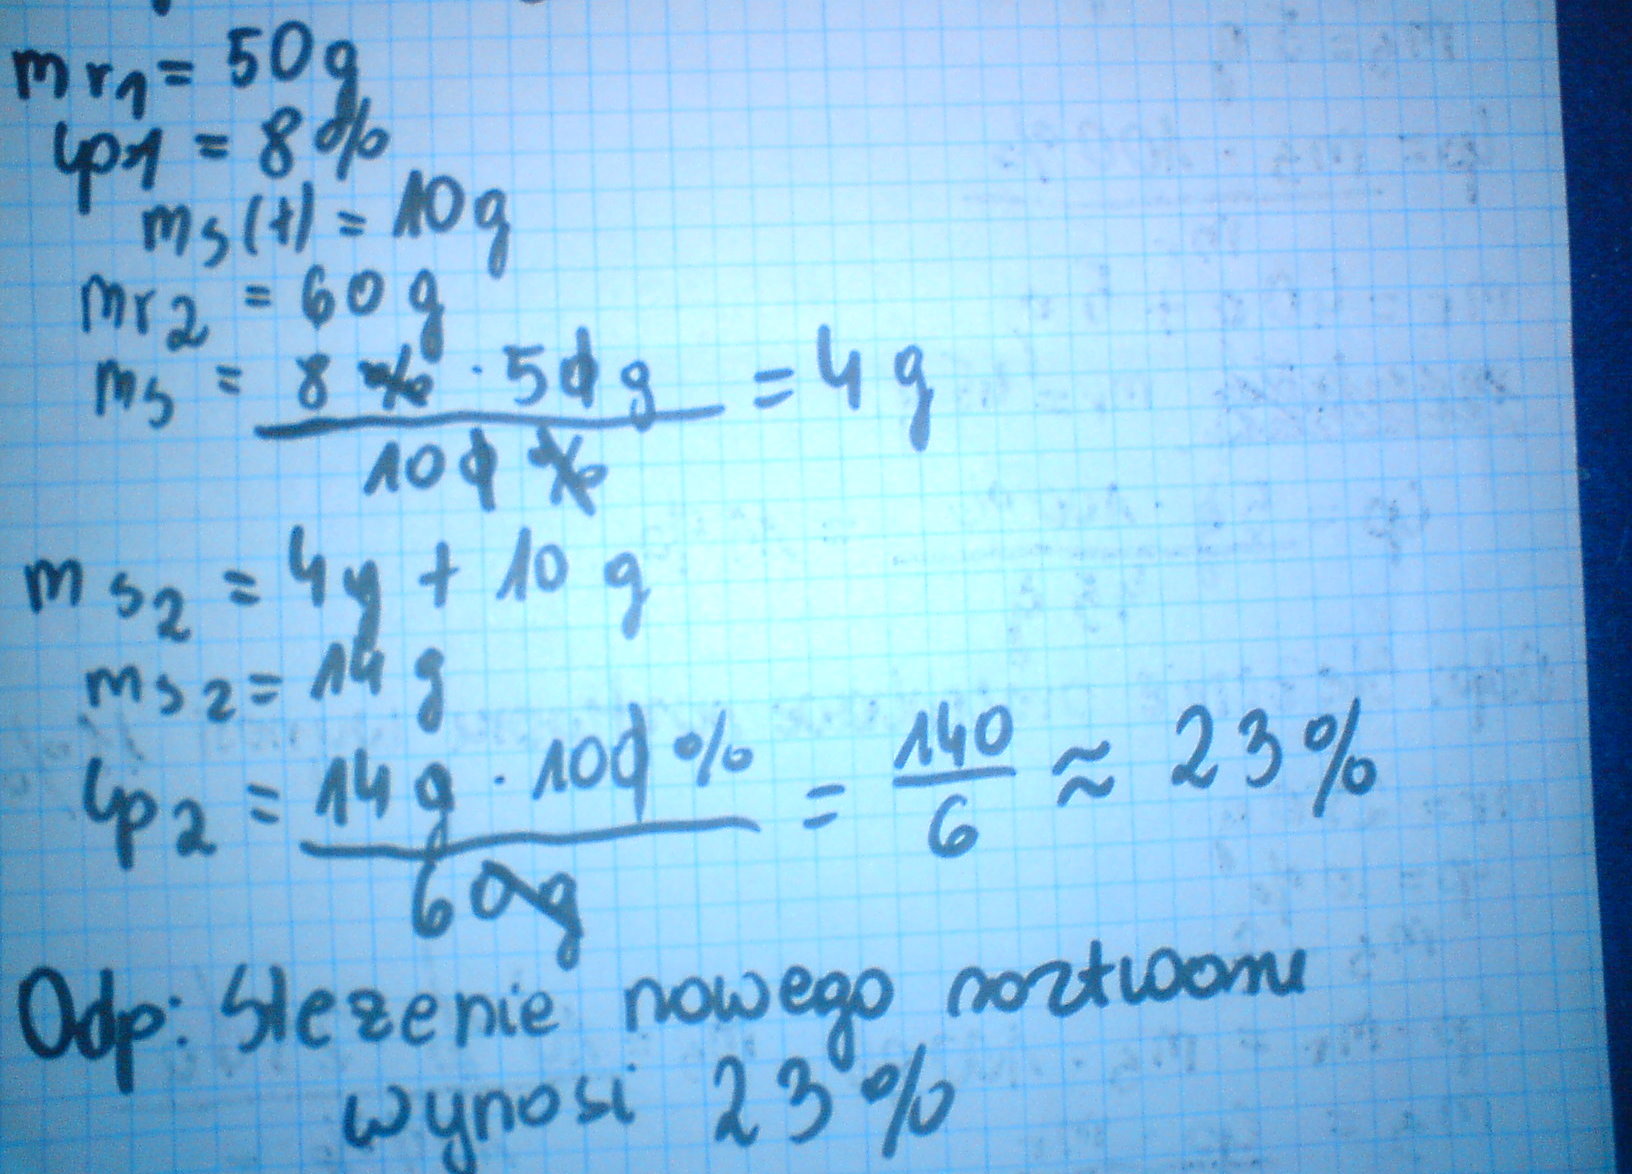 mr1 = 50g
cp1 = 8%
ms(+) = 10g
mr2 = 60g
ms = 8% · 50g / 100% = 4g
ms2 = 4g + 10g
ms2 = 14g
cp2 = 14g · 100% / 60g = 140/6 ≈ 23%
Odp: Stężenie nowego roztworu
wynosi 23%